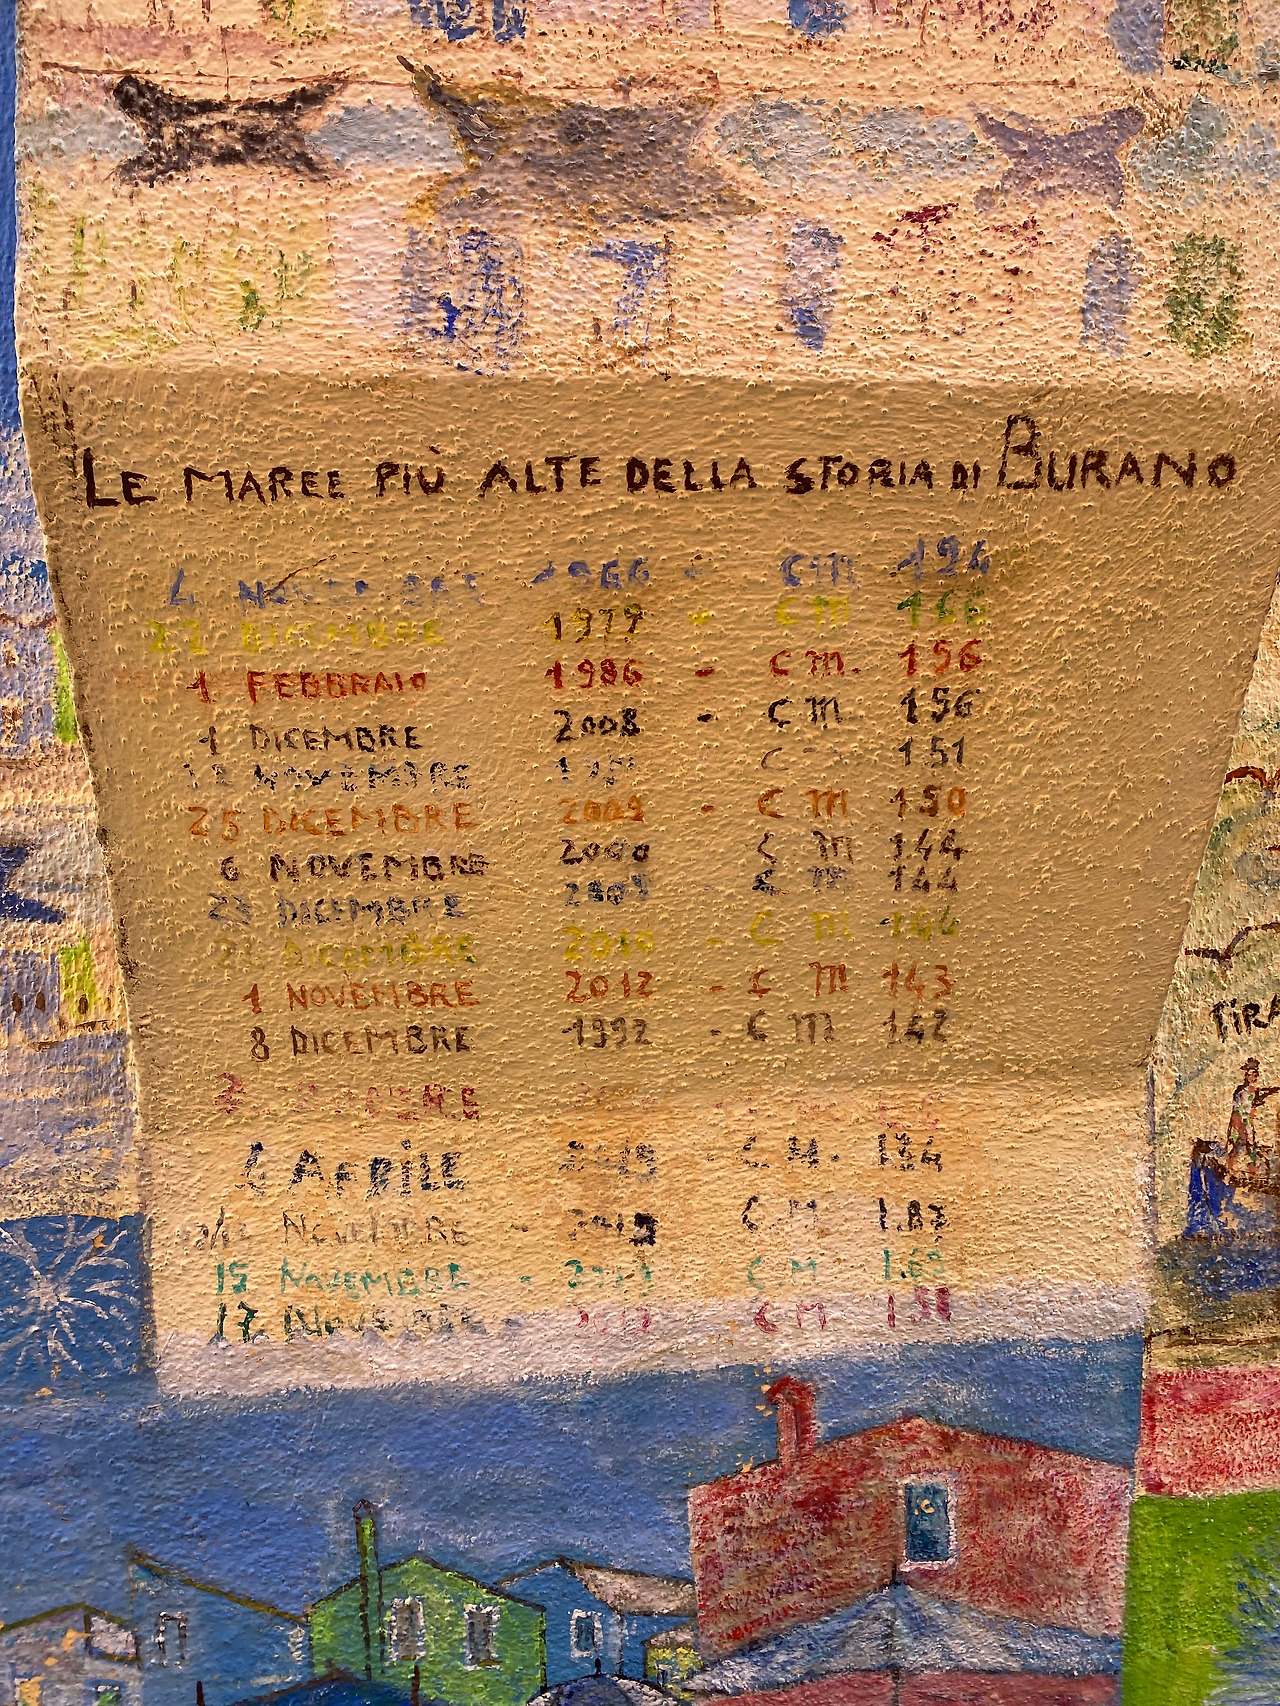 LE MAREE PIÙ ALTE DELLA STORIA DI BURANO
4 1966 - CM 194
22 DICEMBRE 1979 - CM. 166
1 FEBBRAIO 1986 - CM. 156
1 DICEMBRE 2008 - CM 156
NOVEMBRE C 151
25 DICEMBRE 2009 - CM 150
6 NOVEMBRE 2000 CM 144
23 DICEMBRE 2009 CM 144
DICEMBRE 2010 - CM 144
1 NOVEMBRE 2012 - CM 143
8 DICEMBRE 1992 - CM 142
APRILE - CM. 134
NOVEMBRE - 2019 CM 1.87
15 NOVEMBRE - CM
17 NOVEMBRE - CM
TIRA